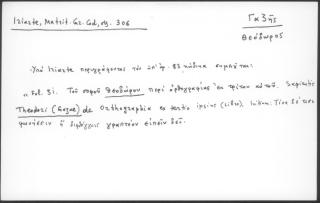 Iriarte, Matrit. Gr. Cod., σελ. 306
Γαζῆς
Θεόδωρος
Ὑπὸ Iriarte περιγράφοντος τὸν ὑπ' ἀρ. 83 κώδικα σημειοῦται:
"Fol. 51. Τοῦ σοφοῦ Θεοδώρου περὶ ὀρθογραφίας ἐκ τρίτου αὐτοῦ. Sapientis
Theodori (Gazae) de Orthographia ex tertio ipsius (Libro). Initium: Τίνα δὲ
φωνήεντι ἢ διφθόγγῳ γραπτέον εἰπεῖν δεῖ.